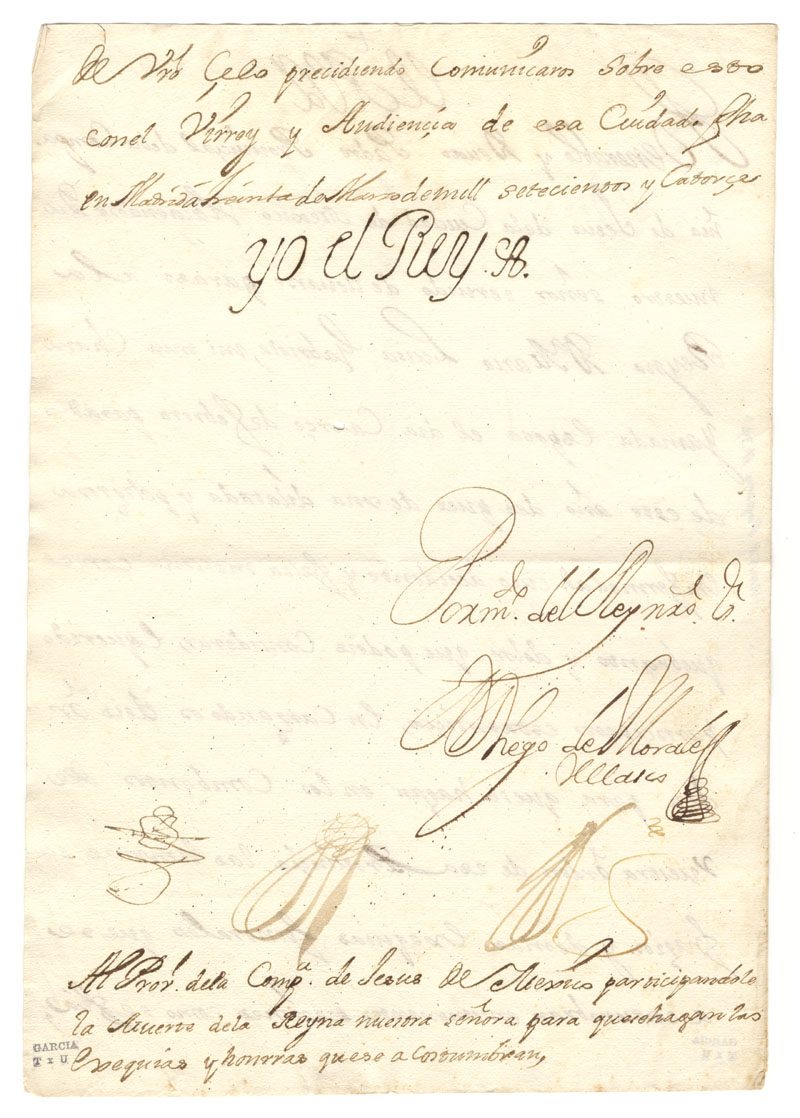 de Vrō Çelo precidiendo Comunicaros sobre esto
conel Virrey y Audiençia de esa Ciudad. fha
en Madrid á treinta de Marzo de mill setecientos y Catorçe
yo el Rey
Por mdō. del Rey nrō. Sr.
Dhego de Morales
Velasco
Al Prov.r dela Comp.a de Jesus de Mexico participandole
la Muerte dela Reyna nuestra señora para que se hagan las
Exequias y honrras que se acostumbran,
GARCIA
T x U